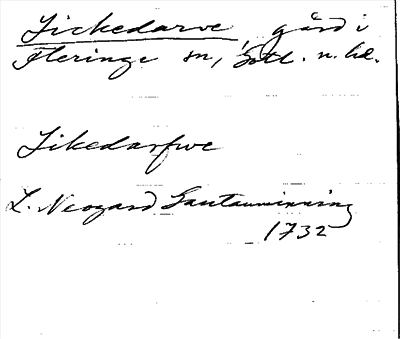 Lickedarve, gård i
Fleringe sn, Gotl. n. hd.
Likedarfwe
L. Neogard Gautauminning
1732